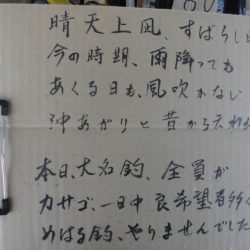 晴天上凪、すばらし
今の時期、雨降っても
あくる日も、風吹かない
沖あがりと昔から云われ
本日、大名釣、全員が
カサゴ、一日中 良 希望者多く
めばる釣、やりませんでした